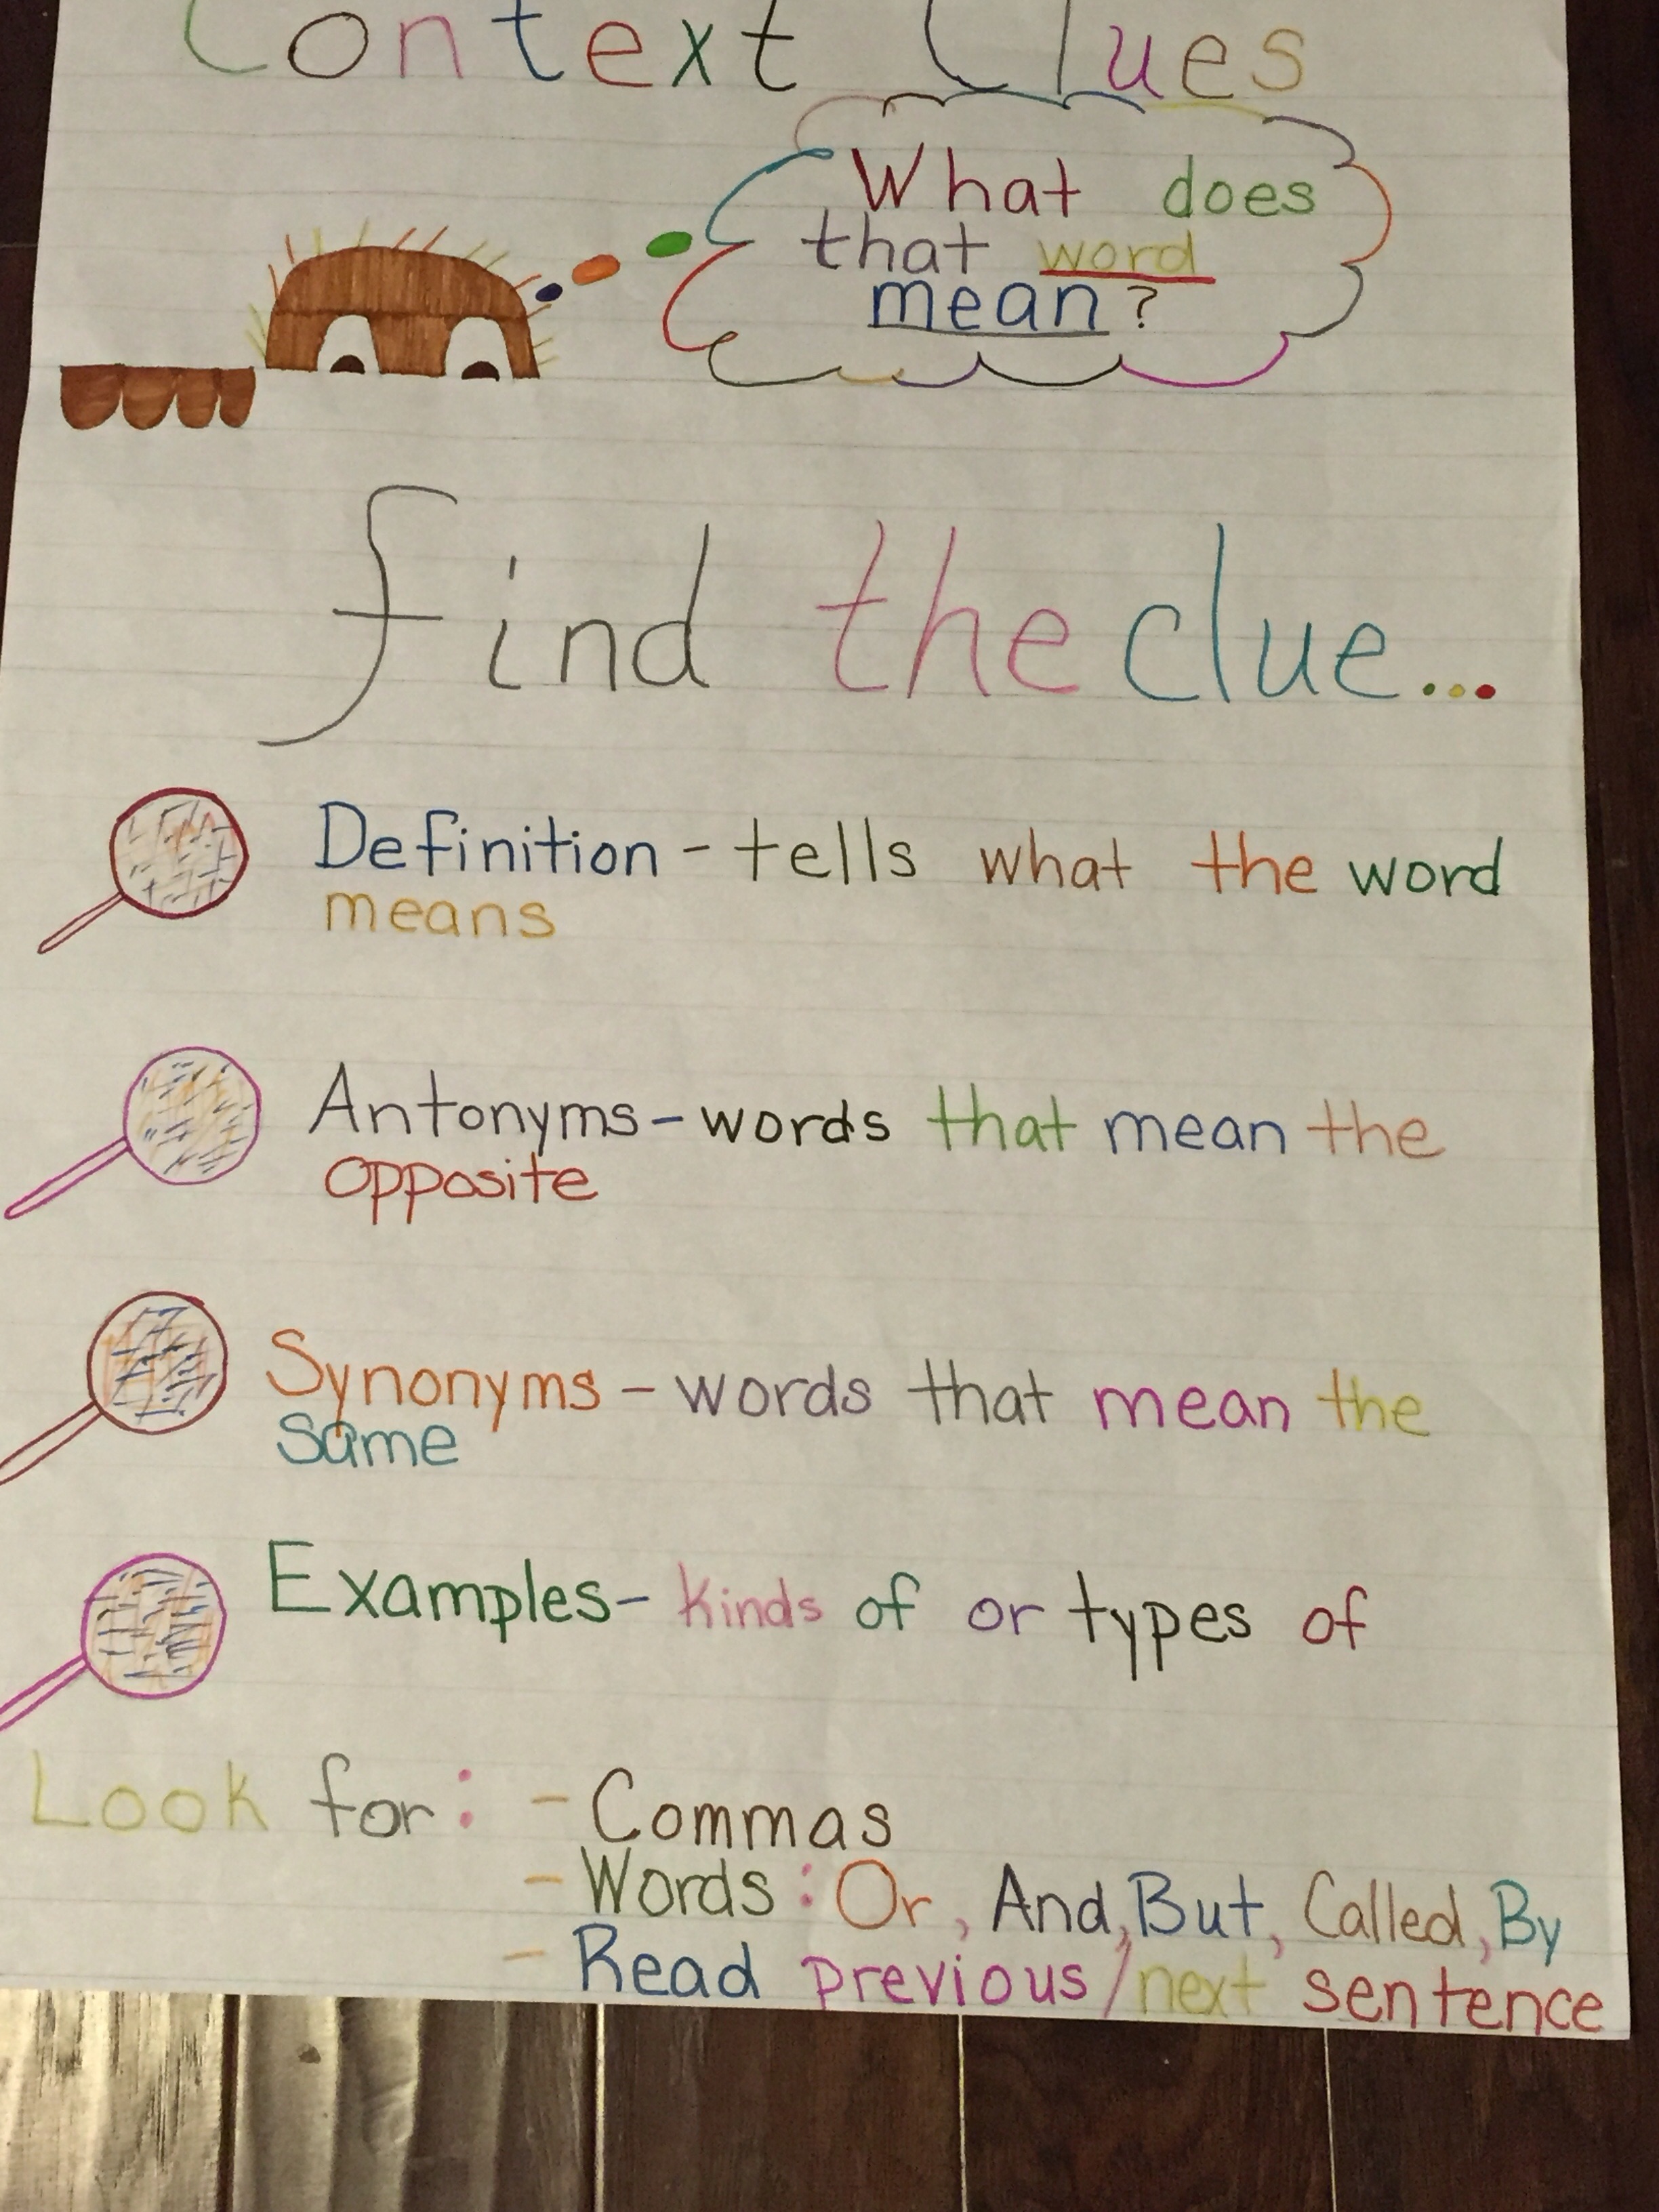 Context Clues
What does
that word
mean?
find the clue...
Definition - tells what the word
means
Antonyms - words that mean the
opposite
Synonyms - words that mean the
same
Examples - kinds of or types of
Look for: - Commas
- Words: Or, And, But, Called, By
- Read previous/next sentence